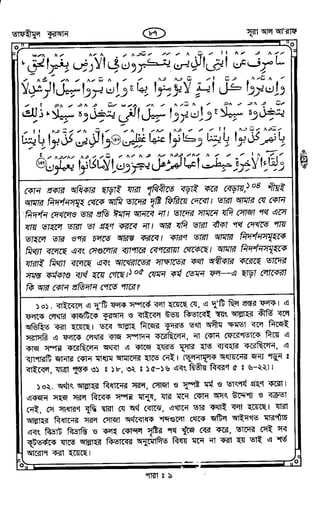 তাফহীমুল কুরআন
৮৭
সূরা আল আ'রাফ
سَاَصْرِفُ عَنْ اٰيٰتِيَ الَّذِيْنَ يَتَكَبَّرُوْنَ فِي الْاَرْضِ بِغَيْرِ الْحَقِّ
وَاِنْ يَّرَوْا كُلَّ اٰيَةٍ لَّا يُؤْمِنُوْا بِهَا وَاِنْ يَّرَوْا سَبِيْلَ الرُّشْدِ لَا
يَتَّخِذُوْهُ سَبِيْلًا وَاِنْ يَّرَوْا سَبِيْلَ الْغَيِّ يَتَّخِذُوْهُ سَبِيْلًا ذٰلِكَ
بِاَنَّهُمْ كَذَّبُوْا بِاٰيٰتِنَا وَكَانُوْا عَنْهَا غٰفِلِيْنَ وَالَّذِيْنَ كَذَّبُوْا بِاٰيٰتِنَا
وَلِقَآءِ الْاٰخِرَةِ حَبِطَتْ اَعْمَالُهُمْ هَلْ يُجْزَوْنَ اِلَّا مَا كَانُوْا يَعْمَلُوْنَ
কোন প্রকার অধিকার ছাড়াই যারা পৃথিবীতে বড়াই করে বেড়ায়,১০৪ শীঘ্রই
আমার নিদর্শনসমূহ থেকে আমি তাদের দৃষ্টি ফিরিয়ে দেবো। তারা আমার যে কোন
নিদর্শন দেখলেও তার প্রতি ঈমান আনবে না। তাদের সামনে যদি সোজা পথ এসে
যায় তাহলে তারা তা গ্রহণ করবে না। আর যদি তারা বাঁকা পথ দেখতে পায়
তাহলে তার ওপর চলতে আরম্ভ করবে। কারণ তারা আমার নিদর্শনসমূহকে
মিথ্যা বলেছে এবং সেগুলোর ব্যাপারে বেপরোয়া থেকেছে। আমার নিদর্শনসমূহকে
যারাই মিথ্যা বলেছে এবং আখেরাতের সাক্ষাতের কথা অস্বীকার করেছে তাদের
সমস্ত কর্মকাণ্ড ব্যর্থ হয়ে গেছে।১০৫ যেমন কর্ম তেমন ফল—এ ছাড়া লোকেরা
কি আর কোন প্রতিদান পেতে পারে?
১০১. বাইবেলে এ দু'টি ফলক সম্পর্কে বলা হয়েছে যে, এ দু'টি ছিল প্রস্তর ফলক। এ
ফলকে লেখার কাজটিকে কুরআন ও বাইবেলে উভয় কিতাবেই স্বয়ং আল্লাহর কীর্তি বলে
অভিহিত করা হয়েছে। তবে আল্লাহ নিজের কুদরত তথা অসীম ক্ষমতা বলে নিজেই
সরাসরি এ ফলকে লেখার কাজ সম্পাদন করেছিলেন, না কোন ফেরেশতাকে দিয়ে এ
কাজ সম্পন্ন করেছিলেন অথবা এ কাজে হযরত মূসার হাত ব্যবহার করেছিলেন, এ
ব্যাপারটি জানার কোন মাধ্যম আমাদের হাতে নেই। (তুলনামূলক অধ্যয়নের জন্য পড়ুন ঃ
বাইবেল, যাত্রা পুস্তক ৩১ ঃ ১৮, ৩২ ঃ ১৫-১৬ এবং দ্বিতীয় বিবরণ ৫ ঃ ৬-২২)।
১০২. অর্থাৎ আল্লাহর বিধানের সরল, সোজা ও সুস্পষ্ট মর্ম ও তাৎপর্য গ্রহণ করো।
একজন সহজ সরল বিবেক সম্পন্ন মানুষ, যার মনে কোন অসৎ উদ্দেশ্য ও বক্রতা
নেই, সে সাধারণ বুদ্ধি দ্বারা যে অর্থ বোঝে, এখানে তার কথাই বলা হয়েছে। যারা
আল্লাহর বিধানের সরল সোজা অর্থবোধক